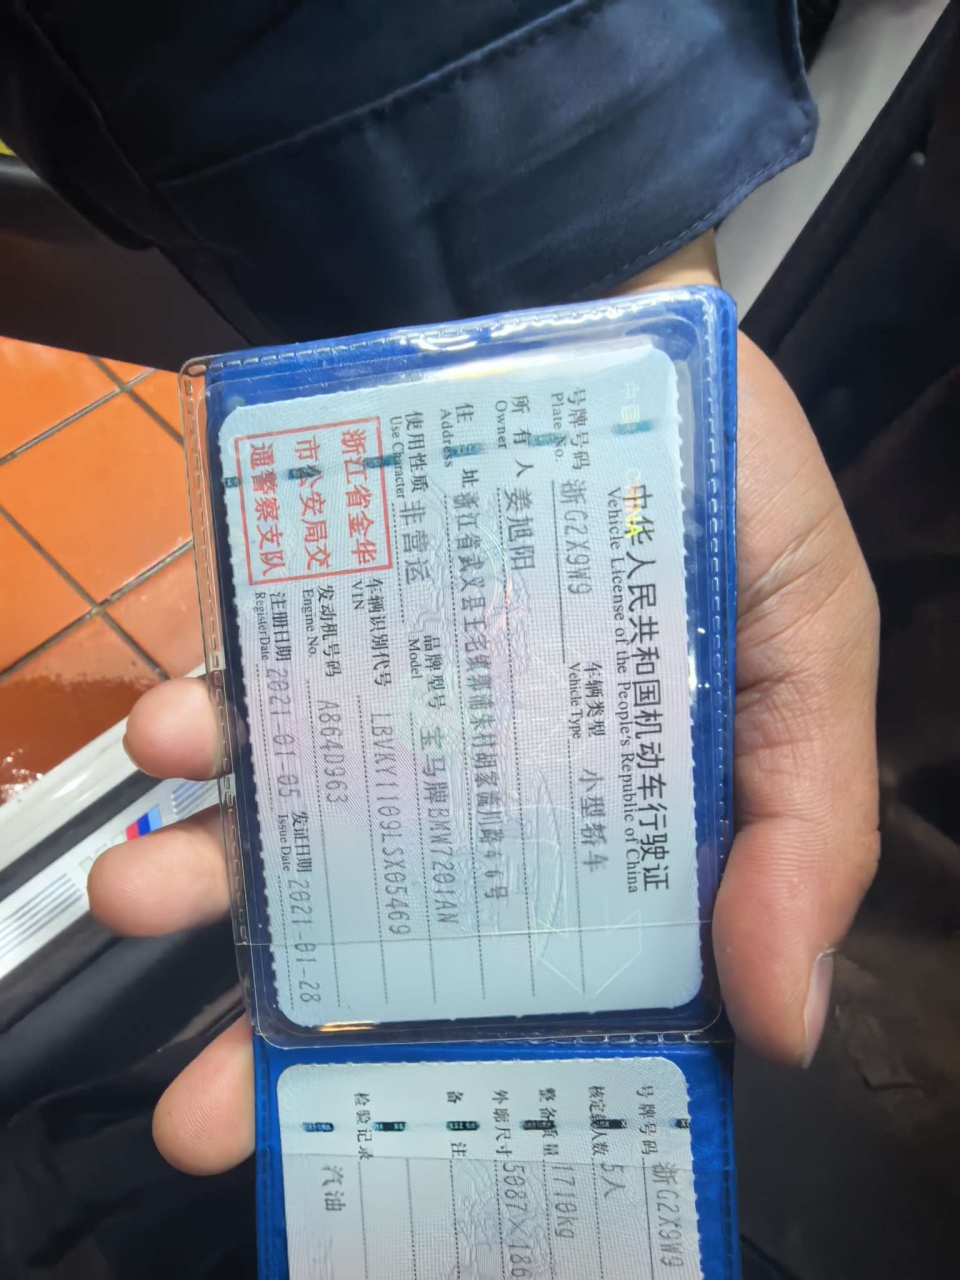 中华人民共和国机动车行驶证
Vehicle License of the People's Republic of China
号牌号码 浙G2X9W9 车辆类型 小型轿车
Plate No. Vehicle Type
所有人 姜旭阳
Owner
住址 浙江省武义县王宅镇 朱村胡家 川路46号
Address
使用性质 非营运 品牌型号 宝马牌BMW7201AN
Use Character Model
浙江省金华
市公安局交
通警察支队
车辆识别代号 LBVKY1109LSX05469
VIN
发动机号码 A864D963
Engine No.
注册日期 2021-01-05 发证日期 2021-01-28
Register Date Issue Date
号牌号码 浙G2X9W9
核定载人数 5人
整备质量 1710kg
外廓尺寸 5087×186
备注
检验记录
汽油